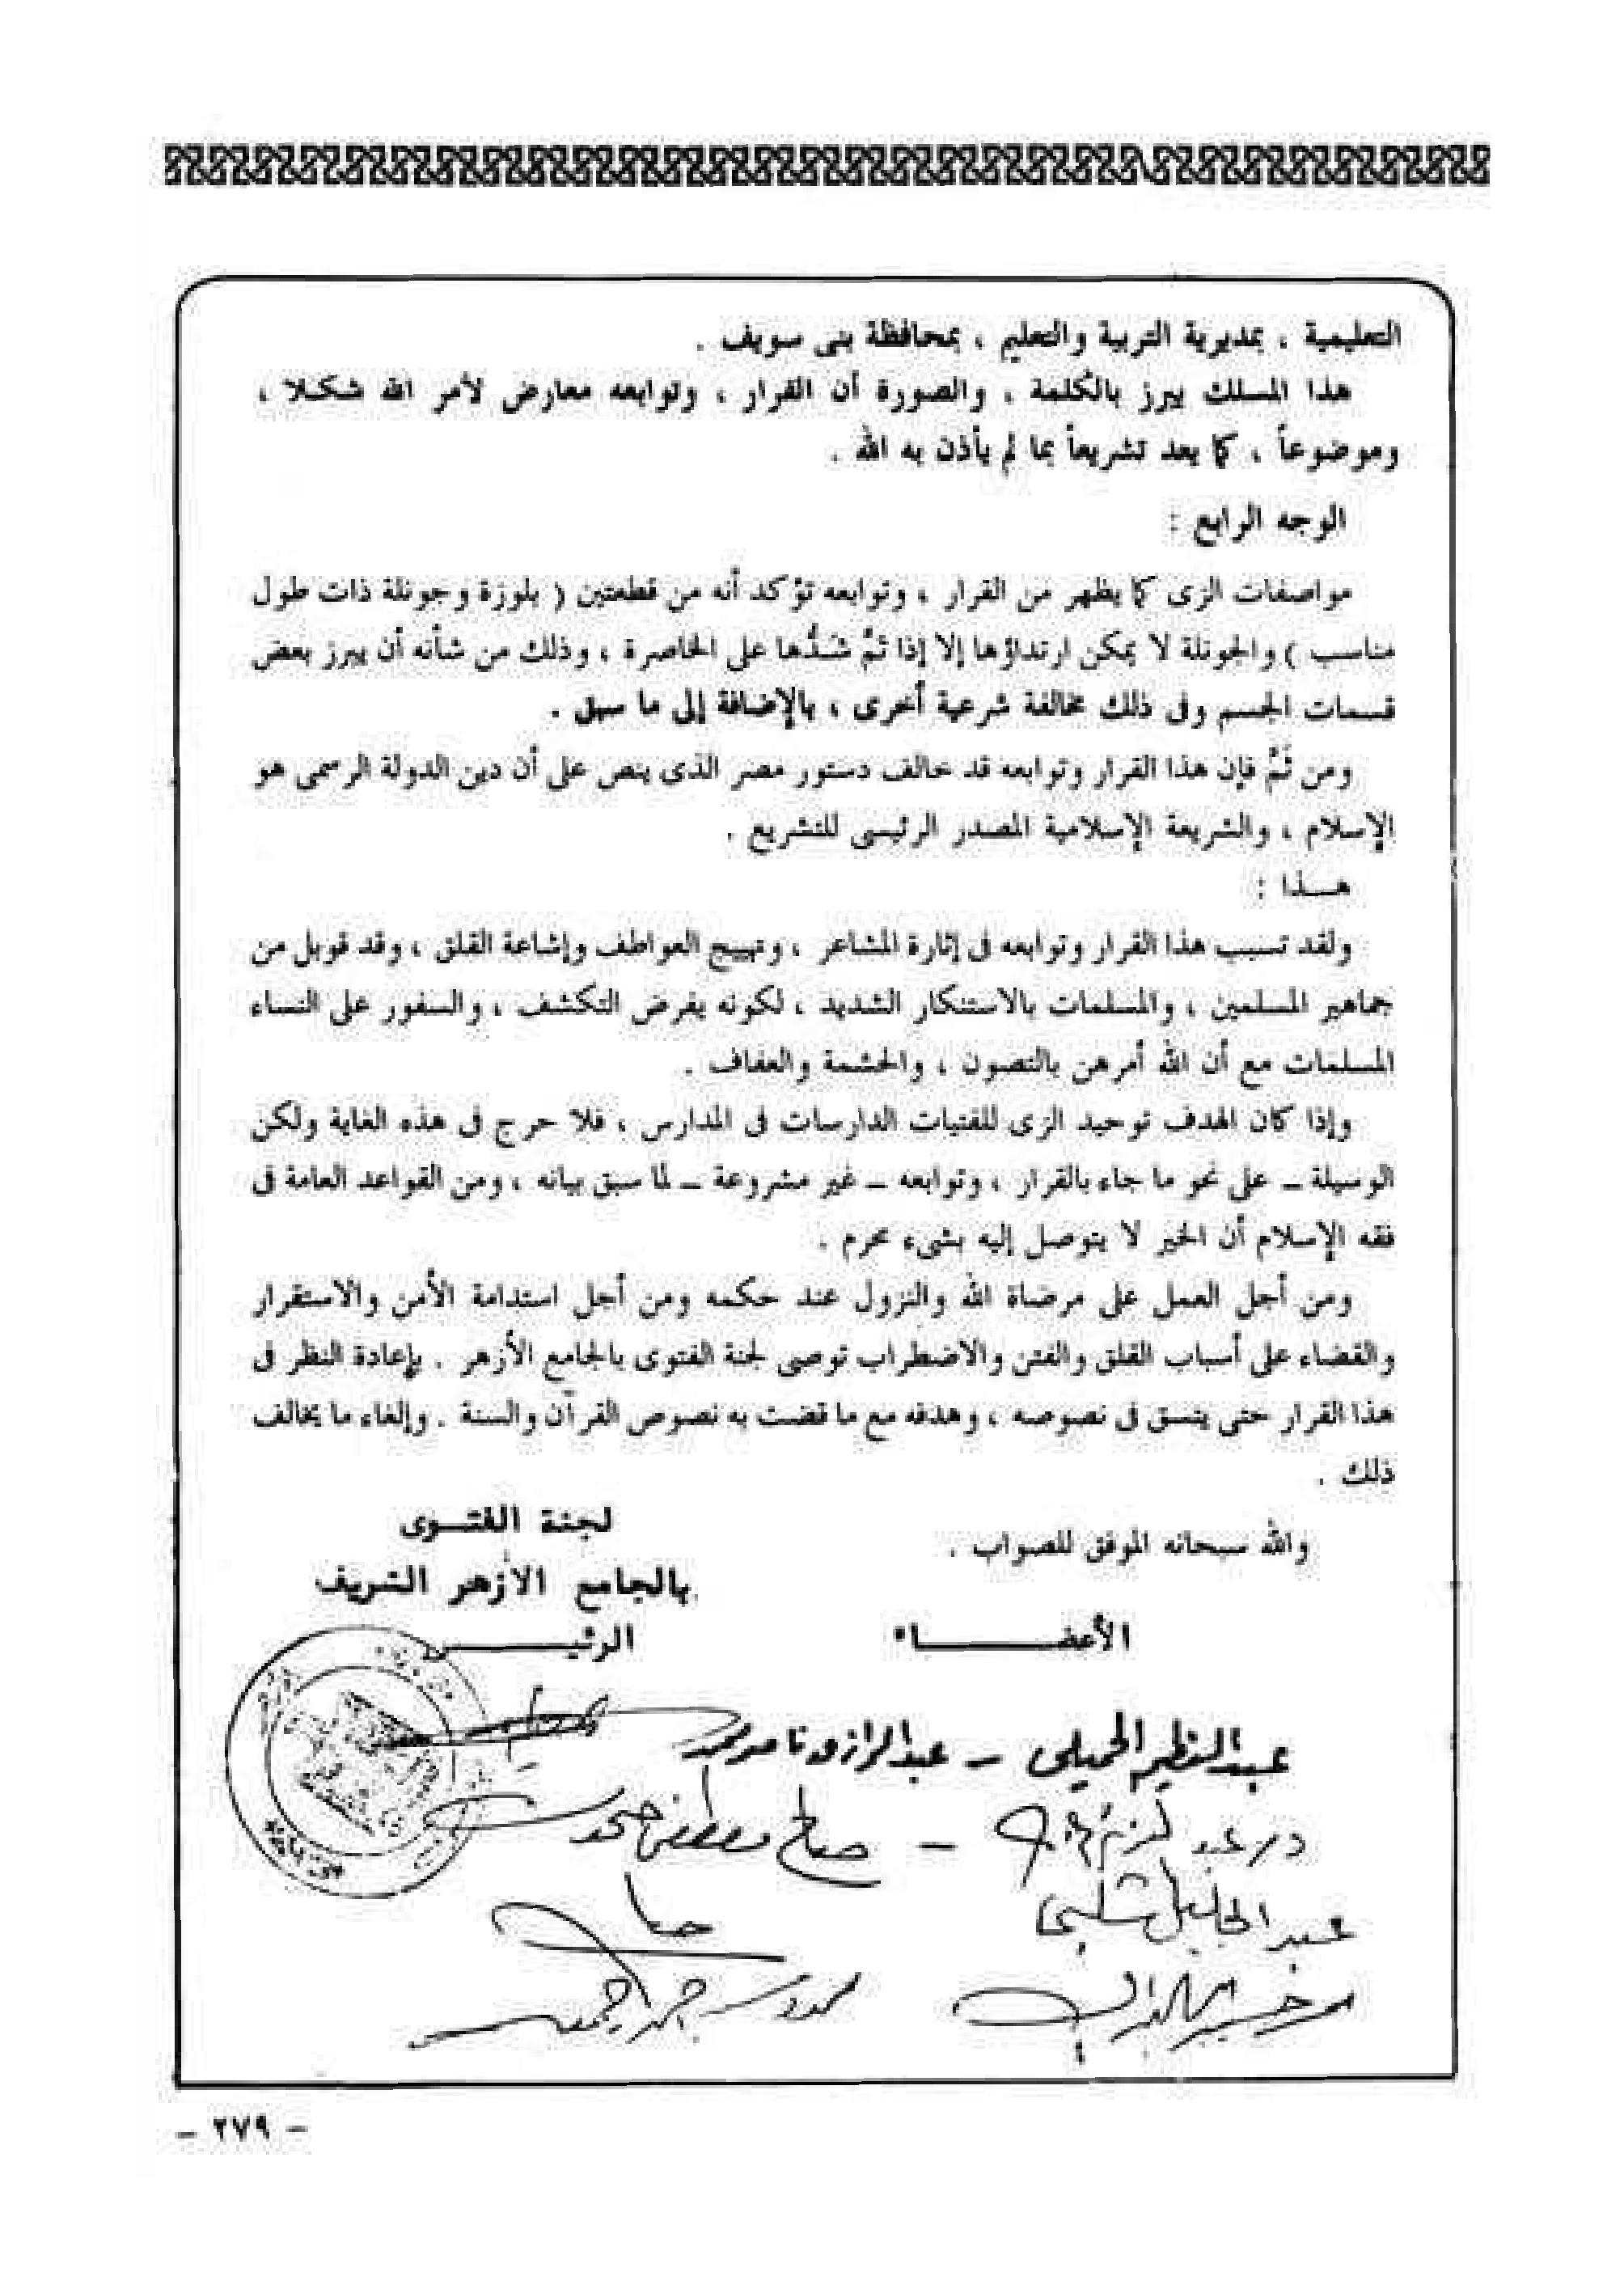 التعليمية ، بمديرية التربية والتعليم ، بمحافظة بنى سويف .
هذا المسلك يبرز بالكلمة ، والصورة أن القرار ، وتوابعه معارض لأمر الله شكلا ،
وموضوعاً ، كما يعد تشريعاً بما لم يأذن به الله .
الوجه الرابع :
مواصفات الزى كما يظهر من القرار ، وتوابعه تؤكد أنه من قطعتين ( بلوزة وجونلة ذات طول
مناسب ) والجونلة لا يمكن ارتداؤها إلا إذا تمَّ شدُّها على الخاصرة ، وذلك من شأنه أن يبرز بعض
قسمات الجسم وفى ذلك مخالفة شرعية أخرى ، بالإضافة إلى ما سبق .
ومن ثَمَّ فإن هذا القرار وتوابعه قد خالف دستور مصر الذى ينص على أن دين الدولة الرسمى هو
الإسلام ، والشريعة الإسلامية المصدر الرئيسى للتشريع .
هـــذا :
ولقد تسبب هذا القرار وتوابعه فى إثارة المشاعر ، وتهييج العواطف وإشاعة القلق ، وقد قوبل من
جماهير المسلمين ، والمسلمات بالاستنكار الشديد ، لكونه يفرض التكشف ، والسفور على النساء
المسلمات مع أن الله أمرهن بالتصون ، والحشمة والعفاف .
وإذا كان الهدف توحيد الزى للفتيات الدارسات فى المدارس ، فلا حرج فى هذه الغاية ولكن
الوسيلة ــ على نحو ما جاء بالقرار ، وتوابعه ــ غير مشروعة ــ لما سبق بيانه ، ومن القواعد العامة فى
فقه الإسلام أن الخير لا يتوصل إليه بشىء محرم .
ومن أجل العمل على مرضاة الله والنزول عند حكمه ومن أجل استدامة الأمن والاستقرار
والقضاء على أسباب القلق والفتن والاضطراب توصى لجنة الفتوى بالجامع الأزهر . بإعادة النظر فى
هذا القرار حتى يتسق فى نصوصه ، وهدفه مع ما قضت به نصوص القرآن والسنة . وإلغاء ما يخالف
ذلك .
والله سبحانه الموفق للصواب .
لجنة الفتـــوى
بالجامع الأزهر الشريف
الرئيـــــــس
الأعضـــــــاء
عبد العظيم الحميلى ــ عبد الرازق ناصر محمد
د / عبد ــ صالح مصطفى
عبد الجليل شلبى
– ٢٧٩ –